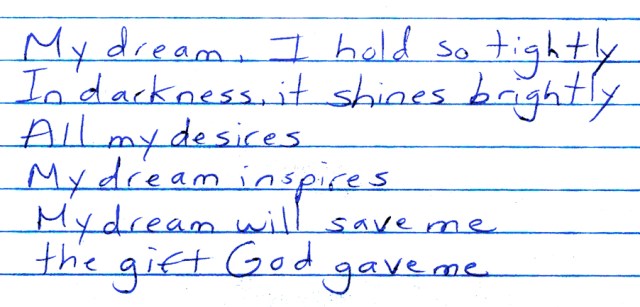 My dream, I hold so tightly
In darkness, it shines brightly
All my desires
My dream inspires
My dream will save me
the gift God gave me